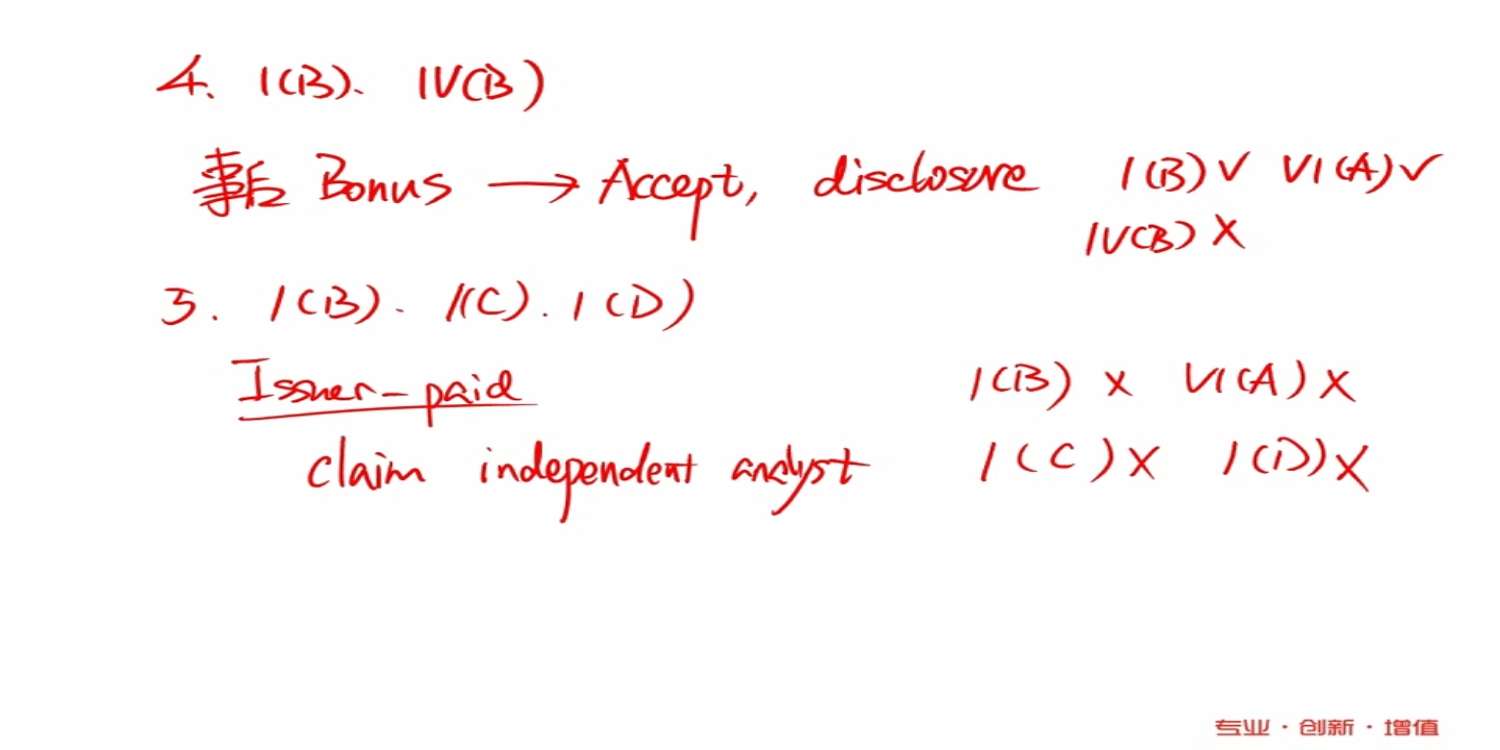 4. I(B). IV(B)
事后 Bonus → Accept, disclosure I(B)✓ VI(A)✓
IV(B) ×
5. I(B). I(C). I(D)
Issuer-paid I(B) × VI(A) ×
claim independent analyst I(C) × I(D) ×
专业·创新·增值